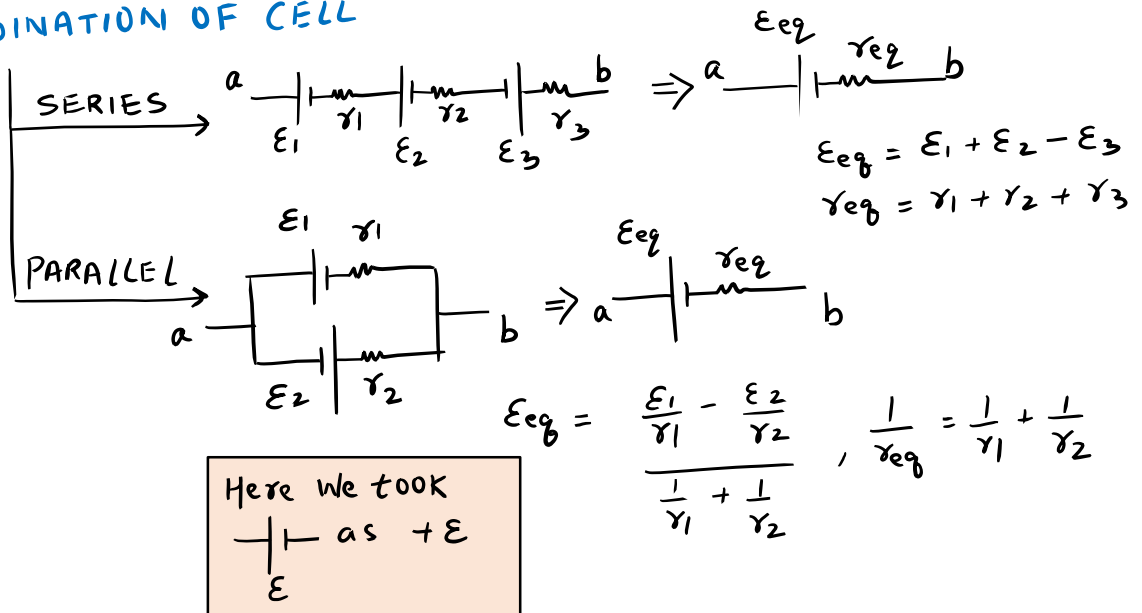 DINATION OF CELL
SERIES
a ε1 r1 ε2 r2 ε3 r3 b ⇒ a εeq req b
εeq = ε1 + ε2 − ε3
req = r1 + r2 + r3
PARALLEL
a ε1 r1 ε2 r2 b ⇒ a εeq req b
εeq = (ε1/r1 − ε2/r2) / (1/r1 + 1/r2) , 1/req = 1/r1 + 1/r2
Here we took
as +ε
ε